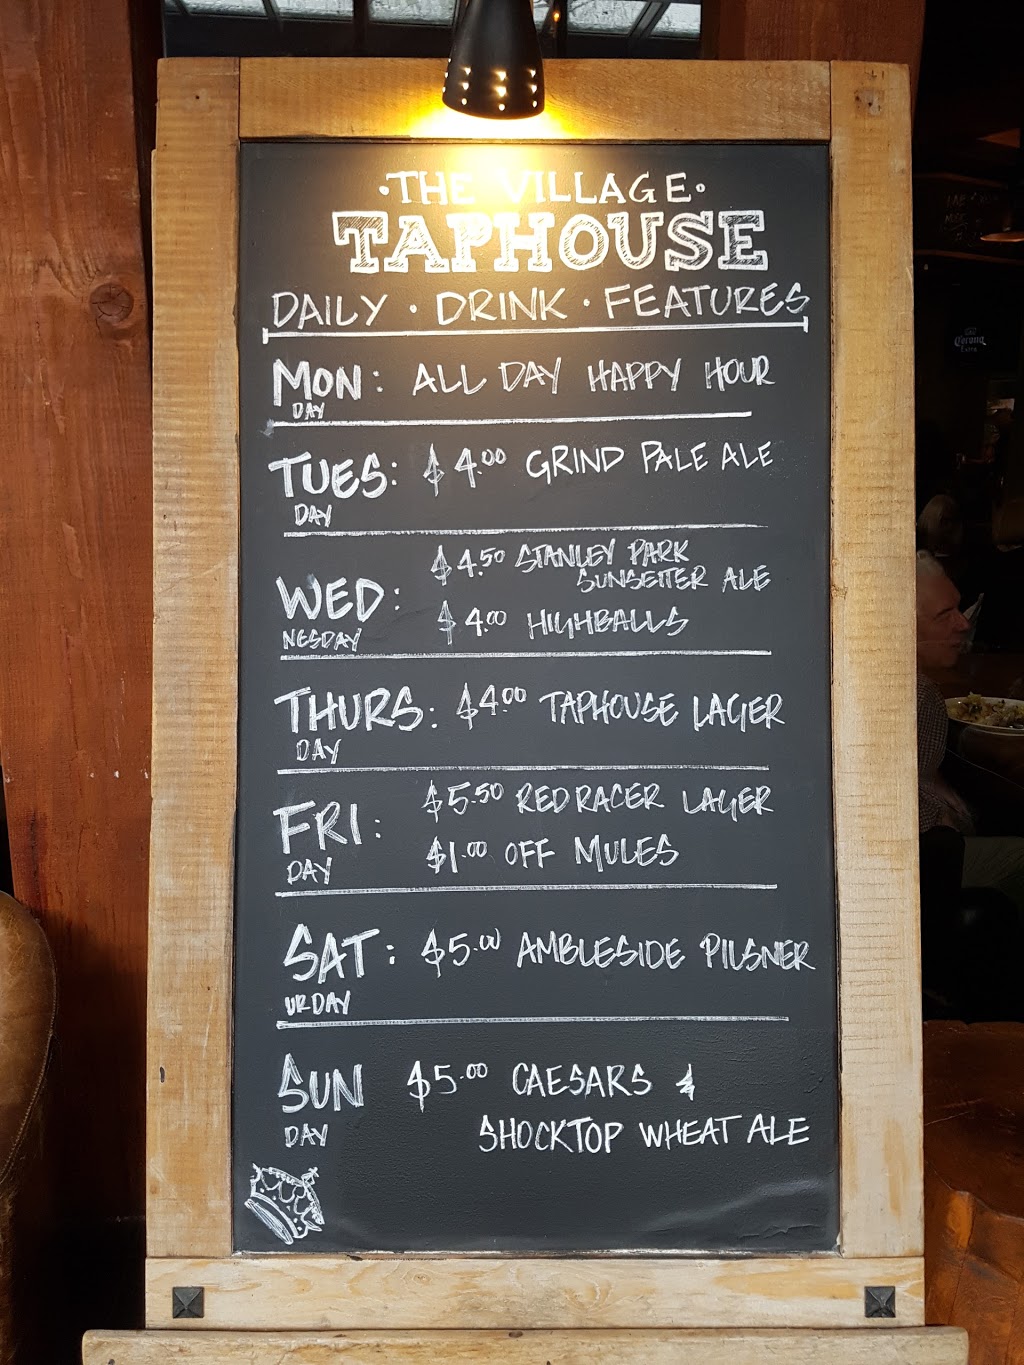 ·THE VILLAGE·
TAPHOUSE
DAILY · DRINK · FEATURES
MON: ALL DAY HAPPY HOUR
DAY
TUES: $4.00 GRIND PALE ALE
DAY
$4.50 STANLEY PARK
SUNSETTER ALE
WED:
$4.00 HIGHBALLS
NESDAY
THURS: $4.00 TAPHOUSE LAGER
DAY
$5.50 RED RACER LAGER
FRI:
$1.00 OFF MULES
DAY
SAT: $5.00 AMBLESIDE PILSNER
URDAY
SUN $5.00 CAESARS &
DAY SHOCKTOP WHEAT ALE
Corona
Extra